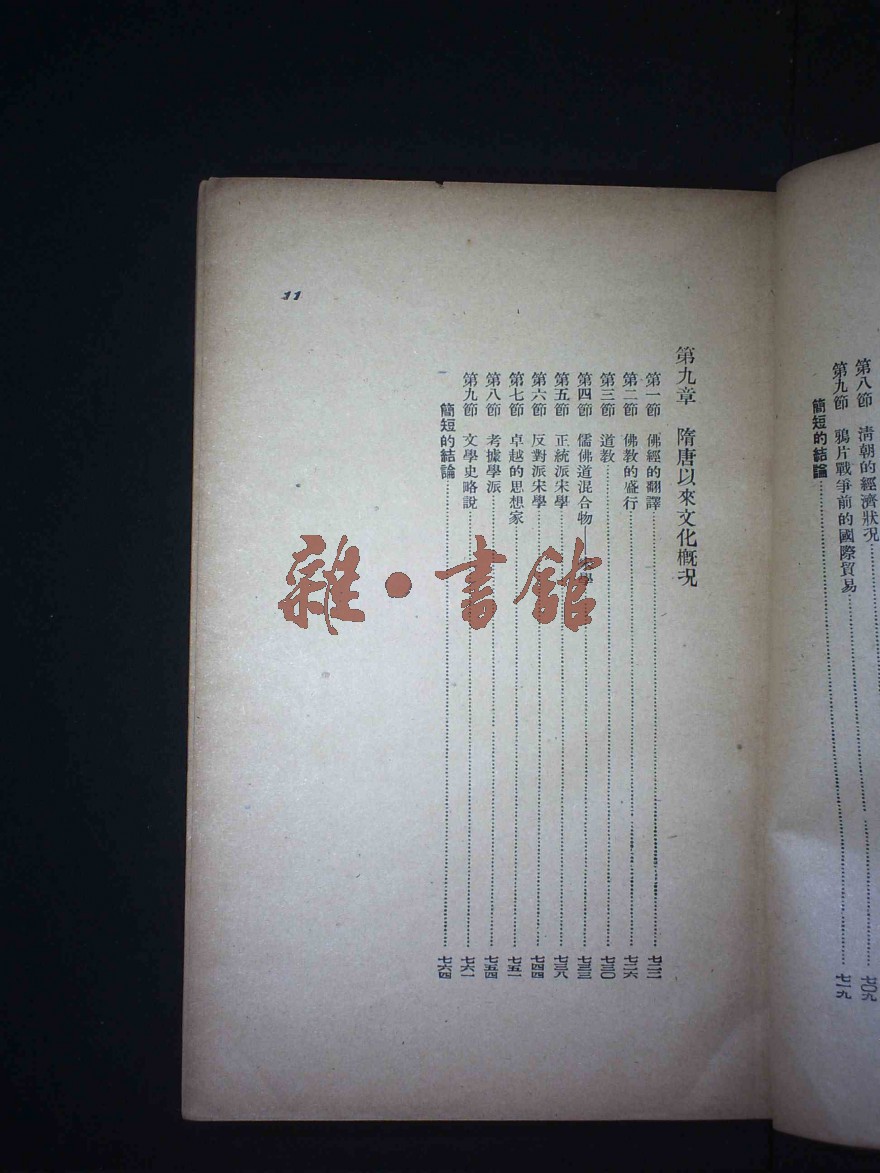 第八節 清朝的經濟狀況 七〇九
第九節 鴉片戰爭前的國際貿易 七一九
簡短的結論
第九章 隋唐以來文化概況
第一節 佛經的翻譯
第二節 佛教的盛行 七二六
第三節 道教 七三〇
第四節 儒佛道混合物——宋學 七三三
第五節 正統派宋學 七三八
第六節 反對派宋學 七四四
第七節 卓越的思想家 七五一
第八節 考據學派 七五四
第九節 文學史略說 七六一
簡短的結論 七六四
11
雜·書館